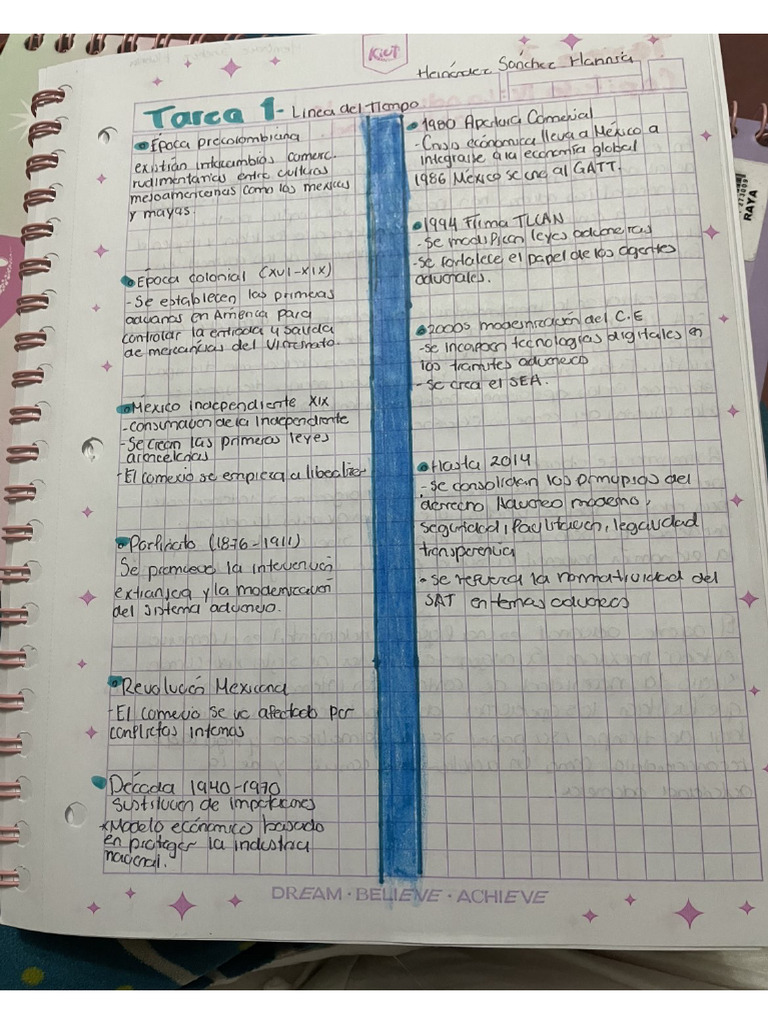 KIUT
Hernández Sánchez Hannia
Tarea 1- Linea del Tiempo
Época precolombiana
existian intercambios comerc.
rudimentarios entre culturas
mesoamericanas como los mexicas
y mayas.
Época colonial (XVI-XIX)
- Se establecen las primeras
aduanas en América para
controlar la entrada y salida
de mercancias del Virreinato.
México independiente XIX
- consumación de la Independiente
- Se crean las primeras leyes
arancelarias
- El comercio se empieza a liberalizar
Porfiriato (1876-1911)
Se promueve la intervención
extranjera y la modernización
del sistema aduanero.
Revolución Mexicana
- El comercio se ve afectado por
conflictos internos
Década 1940-1970
Sustitución de importaciones
*Modelo económico basado
en proteger la industria
nacional.
1980 Apertura Comercial
- Crisis económica lleva a México a
integrarse a la economía global
1986 México se une al GATT.
1994 Firma TLCAN
- Se modifican leyes aduaneras
- Se fortalece el papel de los agentes
aduanales.
2000s modernización del C.E
- se incorporan tecnologías digitales en
los trámites aduanero
- Se crea el SEA.
Hasta 2014
- Se consolidan los principios del
derecho Aduanero moderno,
seguridad, facilitación, legalidad
transparencia
- se refuerza la normatividad del
SAT en temas aduaneros
DREAM · BELIEVE · ACHIEVE
RAYA